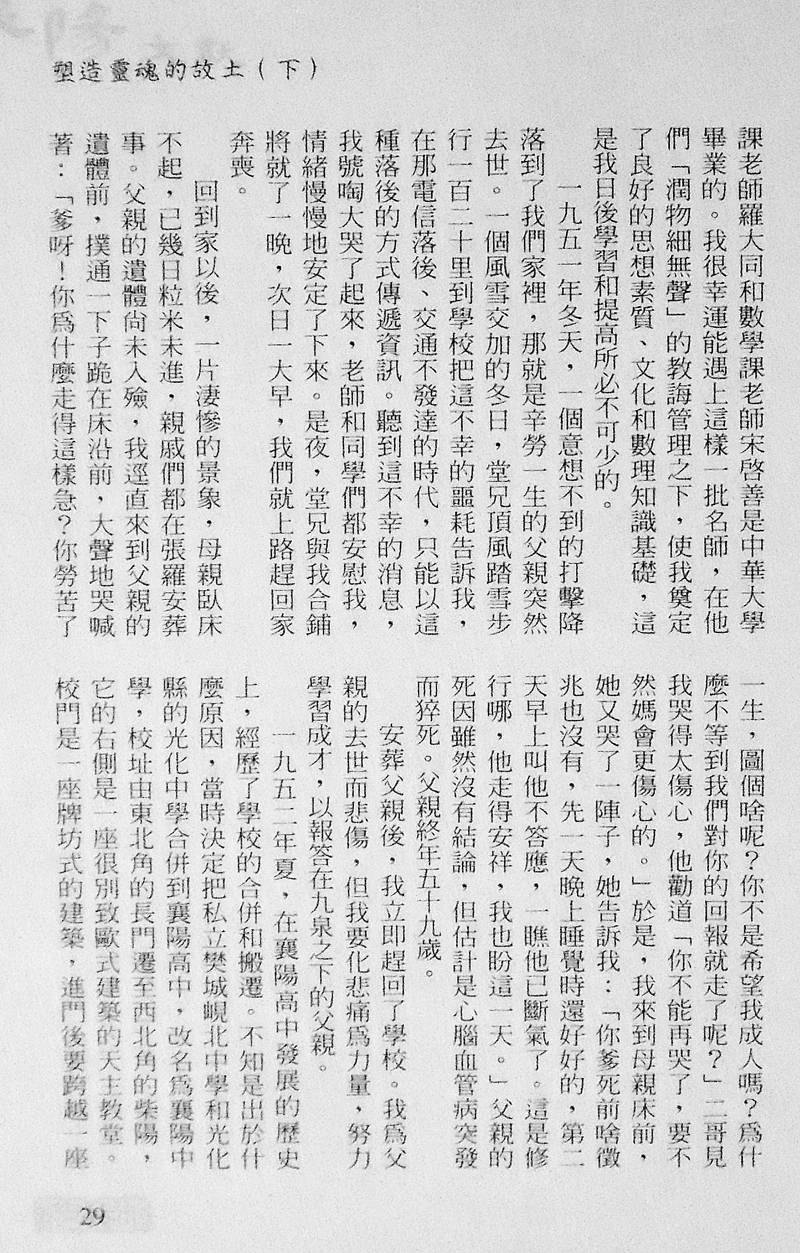 塑造靈魂的故土（下）
課老師羅大同和數學課老師宋啓善是中華大學
畢業的。我很幸運能遇上這樣一批名師，在他
們「潤物細無聲」的教誨管理之下，使我奠定
了良好的思想素質、文化和數理知識基礎，這
是我日後學習和提高所必不可少的。
一九五一年冬天，一個意想不到的打擊降
落到了我們家裡，那就是辛勞一生的父親突然
去世。一個風雪交加的冬日，堂兄頂風踏雪步
行一百二十里到學校把這不幸的噩耗告訴我，
在那電信落後、交通不發達的時代，只能以這
種落後的方式傳遞資訊。聽到這不幸的消息，
我號啕大哭了起來，老師和同學們都安慰我，
情緒慢慢地安定了下來。是夜，堂兄與我合鋪
將就了一晚，次日一大早，我們就上路趕回家
奔喪。
回到家以後，一片淒慘的景象，母親臥床
不起，已幾日粒米未進，親戚們都在張羅安葬
事。父親的遺體尙未入殮，我逕直來到父親的
遺體前，撲通一下子跪在床沿前，大聲地哭喊
著：「爹呀！你爲什麼走得這樣急？你勞苦了
一生，圖個啥呢？你不是希望我成人嗎？爲什
麼不等到我們對你的回報就走了呢？」二哥見
我哭得太傷心，他勸道「你不能再哭了，要不
然媽會更傷心的。」於是，我來到母親床前，
她又哭了一陣子，她告訴我：「你爹死前啥徵
兆也沒有，先一天晚上睡覺時還好好的，第二
天早上叫他不答應，一瞧他已斷氣了。這是修
行哪，他走得安祥，我也盼這一天。」父親的
死因雖然沒有結論，但估計是心腦血管病突發
而猝死。父親終年五十九歲。
安葬父親後，我立即趕回了學校。我爲父
親的去世而悲傷，但我要化悲痛爲力量，努力
學習成才，以報答在九泉之下的父親。
一九五二年夏，在襄陽高中發展的歷史
上，經歷了學校的合併和搬遷。不知是出於什
麼原因，當時決定把私立樊城峴北中學和光化
縣的光化中學合併到襄陽高中，改名爲襄陽中
學，校址由東北角的長門遷至西北角的柴陽，
它的右側是一座很別致歐式建築的天主教堂。
校門是一座牌坊式的建築，進門後要跨越一座
29